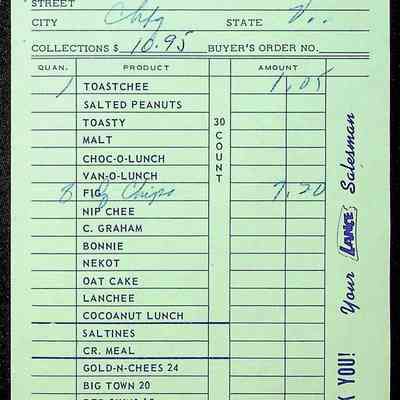 STREET
CITY Chfg STATE V..
COLLECTIONS $ 10.95 BUYER'S ORDER NO.
QUAN. PRODUCT AMOUNT
1 TOASTCHEE 1.05
SALTED PEANUTS
TOASTY
MALT
CHOC-O-LUNCH
VAN-O-LUNCH
8 FIG Chips 7.20
NIP CHEE
C. GRAHAM
BONNIE
NEKOT
OAT CAKE
LANCHEE
COCOANUT LUNCH
SALTINES
CR. MEAL
GOLD-N-CHEES 24
BIG TOWN 20
30 COUNT
K YOU! Your LANCE Salesman